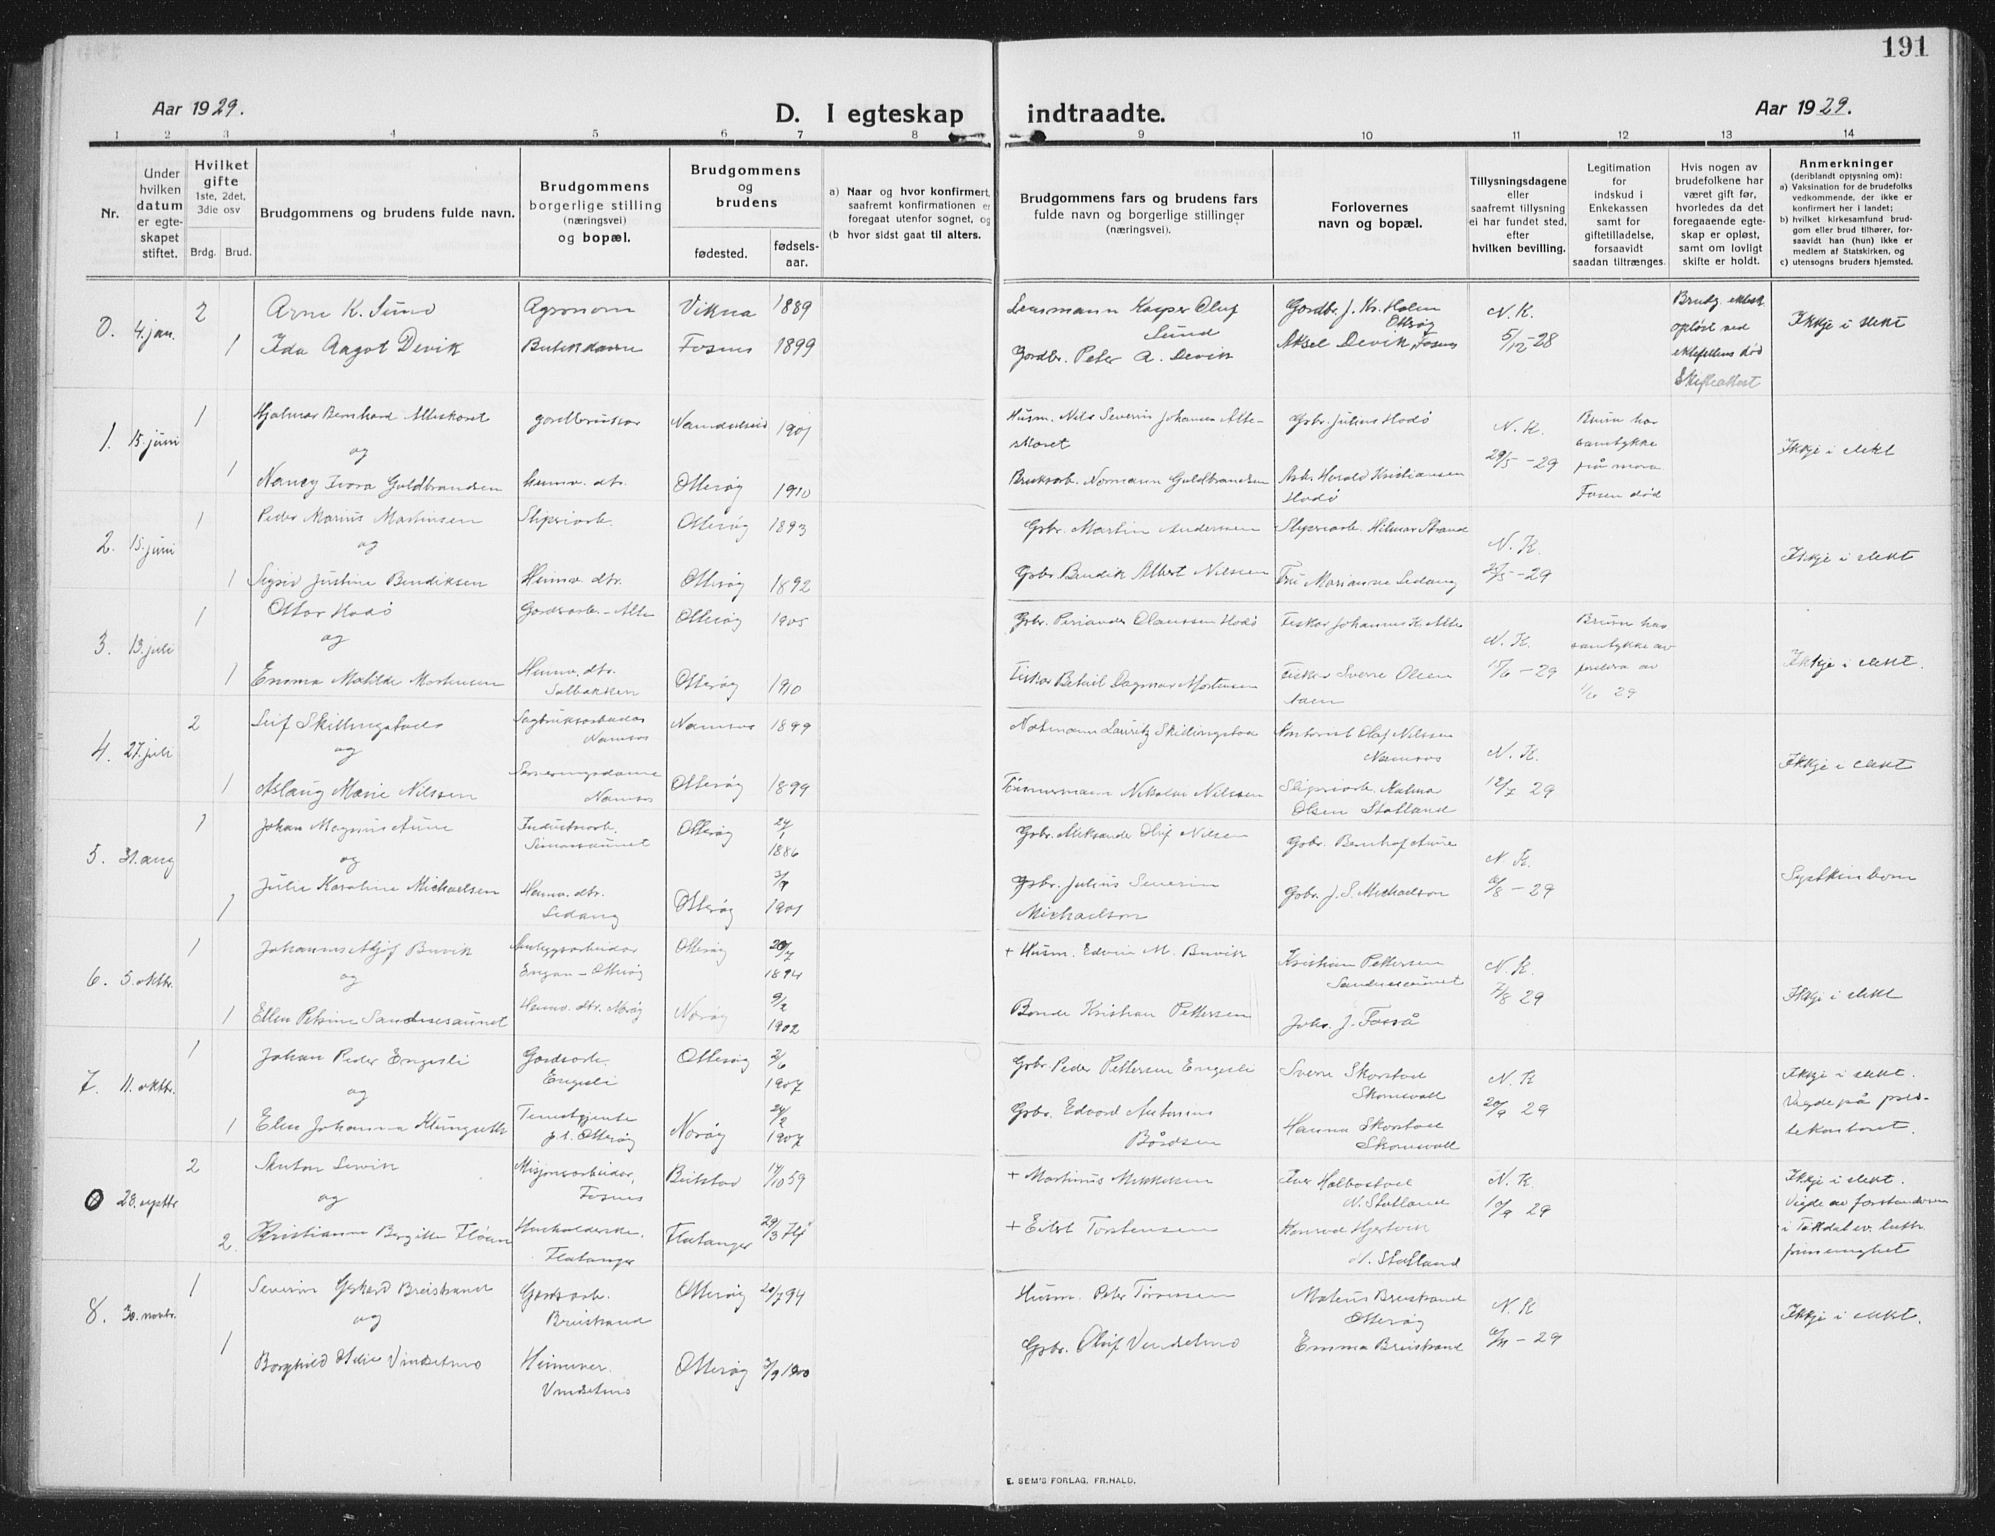 191
Aar 1929.
D. I egteskap indtraadte.
Aar 1929.
1 2 3 4 5 6 7 8 9 10 11 12 13 14
Nr.
Under hvilken datum er egteskapet stiftet.
Hvilket gifte
1ste, 2det, 3die osv
Brdg. Brud.
Brudgommens og brudens fulde navn.
Brudgommens borgerlige stilling (næringsvei) og bopæl.
Brudgommens og brudens
fødested.
fødselsaar.
a) Naar og hvor konfirmert, saafremt konfirmationen er foregaat utenfor sognet, og
(b hvor sidst gaat til alters.
Brudgommens fars og brudens fars fulde navn og borgerlige stillinger (næringsvei).
Forlovernes navn og bopæl.
Tillysningsdagene eller saafremt tillysning ei har fundet sted, efter hvilken bevilling.
Legitimation for indskud i Enkekassen samt for giftetilladelse, forsaavidt saadan tiltrænges.
Hvis nogen av brudefolkene har været gift før, hvorledes da det foregaaende egteskap er opløst, samt om lovligt skifte er holdt.
Anmerkninger
(deriblandt opjysning om):
a) Vaksination for de brudefolks vedkommende, der ikke er konfirmert her i landet;
b) hvilket kirkesamfund brudgom eller brud tilhører, forsaavidt han (hun) ikke er medlem af Statskirken, og
c) utensogns bruders hjemsted.
0. 4. jan. 2 Arne K. Sund Agronom Vikna 1889 Lensmann Kasper Oluf Sund Gardbr. J. Kr. Holen Otterøy N. K. 5/12-28 Brudg. ektesk. opløst ved ektefellens død Skifteattest Ikkje i slekt
1 Ida Aagot Devik Butikkdame Fosnes 1899 Gardbr. Peter A. Devik Aksel Devik, Fosnes
1. 15. juni 1 Hjalmar Bernhard Alteskoret gardbruker Namdalseid 1901 Husm. Nils Severin Johansen Alteskoret Gbr. Julius Hodø N. K. 29/5-29 Brura har samtykke frå mora Faren død Ikkje i slekt
og
1 Nancy Ivara Guldbrandsen heimv. dtr. Otterøy 1910 Bruksarb. Normann Guldbrandsen Arb. Harald Kristiansen Hodø
2. 15. juni 1 Peder Marius Martinsen Sliperiarb. Otterøy 1893 Gbr. Martin Andersen Sliperiarb. Hilmar Strand N. K. -29 Ikkje i slekt
og
1 Sigrid Justine Bendiksen Heimv. dtr. Otterøy 1892 Gbr. Bendik Albert Nilssen Fru Marianne Sedang
3. 13. juli 1 Ottar Hodø Gardsarb. - Alte Otterøy 1905 Gbr. Periander Olaussen Hodø Fiskar Johannes K. Alte N. K. 15/6-29 Brura har samtykke av foreldra av 1/6 29 Ikkje i slekt.
og
1 Emma Matilde Mortensen Heimv. dtr. Solbakken Otterøy 1910 Fiskar Betuel Dagmar Mortensen Fisker Sverre Olsen
4. 27. juli 2 Leif Skillingstad Sagbruksarbeidar Namsos Namsos 1899 Lauritz Skillingstad Olaf Nilssen Namsos N. K. 12/7 29 Ikkje i slekt
og
1 Aslaug Marie Nilssen Serveringsdame Namsos Otterøy 1899 Tømmermann Nikolai Nilssen Sliperiarb. Olsen Statland
5. 31. aug 1 Johan Magnus Aune Industriarb. Otterøy 24/1 1886 Gbr. Aleksander Oluf Nilsen Gbr. Aune N. K. 6/8-29 Syskinborn
og
1 Julie Karoline Michaelsen Heimv. dtr. Sedang Otterøy 1901 Gbr. Julius Severin Michaelsen Gbr. J. S. Michaelsen
6. 5. oktbr. 1 Buvik Anleggsarbeidar Engan - Otterøy Otterøy 1894 + Husm. Edvin M. Buvik Kristian Pettersen N. K. 7/8 29 Ikkje i slekt
og
1 Ellen Petrine Sandnesaunet Heimv. dtr. Nærøy Nærøy 9/2 1902 Bonde Kristian Pettersen Johs. J. Fosså
7. 11. oktbr. 1 Johan Peder Engesli Gardsarb. Engesli Otterøy 2/6 1907 Gbr. Peder Pettersen Engesli Sverre Skorstad N. K 20/9 29 Ikkje i slekt. Vigde på prestekontoret.
og
1 Elen Johanna Tenestgjente p.t. Otterøy Nærøy 24/2 1907 Gbr. Edvard Antonius Bårdsen Hanna Skorstad
0 28. septbr 2 Anton Misjonsarbeider, Fosnes Beitstad 14/10 59 + Martinus Mikkelsen Iver Halbostad N. Statland N. K. 10/9 29 Ikkje i slekt. Vigde av forstanderen i Tøkdal ev. luth. frimenighet
og
2. Kristianna Bergitte Fløan Husholderske, Flatanger Flatanger 29/3 71 + Eilert Torstensen Konrad Hjertvik N. Statland
8. 30. novbr. 1 Severin Breistrand Gardsarb. Breistrand Otterøy 20/7 94 Husm. Peter Tørresen Mateus Breistrand Otterøy N. K -29 Ikkje i slekt.
og
1 Borghild Vindsetmo Heimever. Vindsetmo Otterøy 3/9 1900 Gbr. Oluf Vindsetmo Emma Breistrand
E. SEM'S FORLAG, FR.HALD.